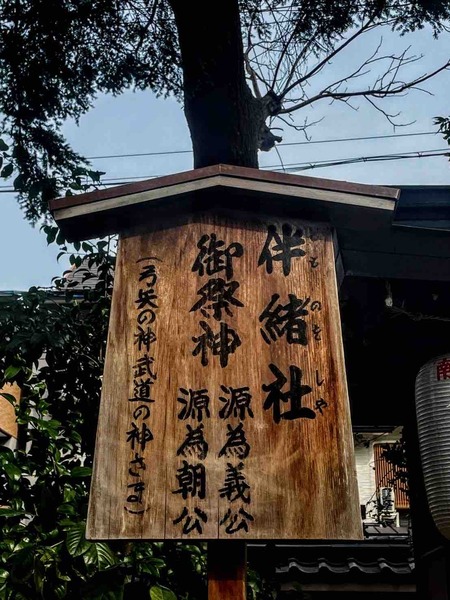 伴緒社
とものをしゃ
御祭神
源為義公
源為朝公
（弓矢の神武道の神さま）